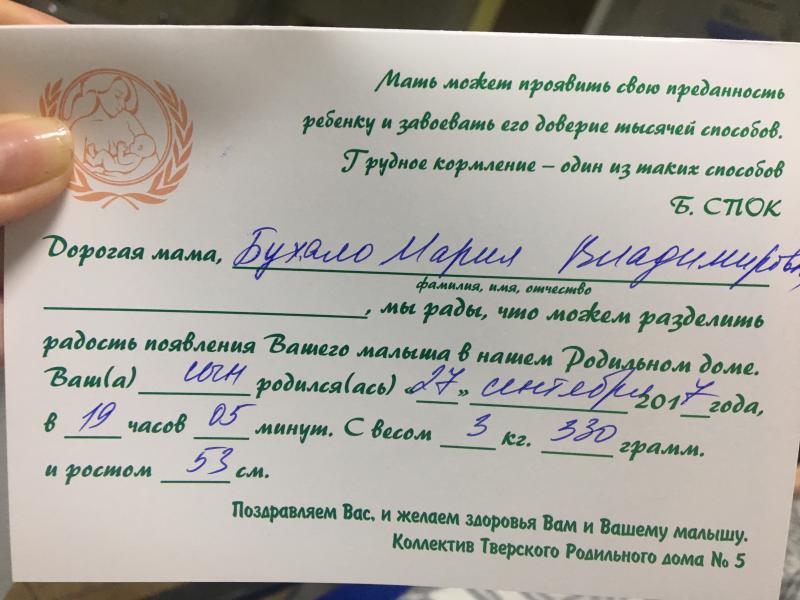 Мать может проявить свою преданность
ребенку и завоевать его доверие тысячей способов.
Грудное кормление – один из таких способов
Б. СПОК
Дорогая мама, Бухало Мария Владимировна
фамилия, имя, отчество
, мы рады, что можем разделить
радость появления Вашего малыша в нашем Родильном доме.
Ваш(а) сын родился(ась) 27 „ сентября 2017 года,
в 19 часов 05 минут. С весом 3 кг. 330 грамм.
и ростом 53 см.
Поздравляем Вас, и желаем здоровья Вам и Вашему малышу.
Коллектив Тверского Родильного дома № 5